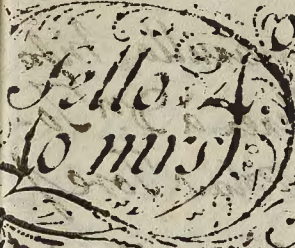 Sello. 4.
mrs